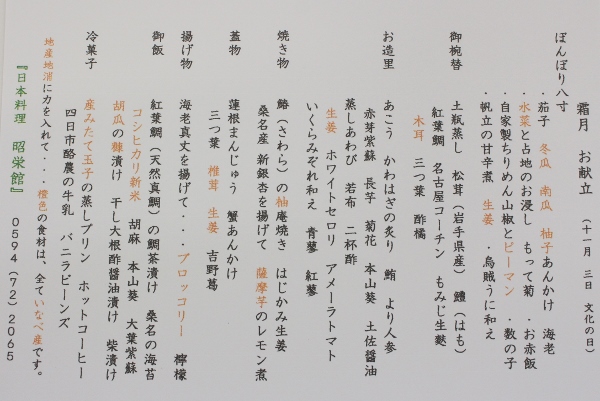 霜月　お献立　（十一月　三日　文化の日）
ぼんぼり八寸
・茄子　冬瓜　南瓜　柚子あんかけ　海老
・水菜と占地のお浸し　もって菊　・お赤飯
・自家製ちりめん山椒とピーマン　・数の子
・帆立の甘辛煮　生姜　・烏賊うに和え
御椀替　土瓶蒸し　松茸（岩手県産）　鱧（はも）
紅葉鯛　名古屋コーチン　もみじ生麩
木耳　三つ葉　酢橘
お造里　あこう　かわはぎの炙り　鮪　より人参
赤芽紫蘇　長芋　菊花　本山葵　土佐醤油
蒸しあわび　若布　二杯酢
生姜　ホワイトセロリ　アメーラトマト
いくらみぞれ和え　青蓼　紅蓼
焼き物　鰆（さわら）の柚庵焼き　はじかみ生姜
桑名産　新銀杏を揚げて　薩摩芋のレモン煮
蓋物　蓮根まんじゅう　蟹あんかけ
三つ葉　椎茸　生姜　吉野葛
揚げ物　海老真丈を揚げて・・ブロッコリー　檸檬
御飯　紅葉鯛（天然真鯛）の鯛茶漬け　桑名の海苔
コシヒカリ新米　胡麻　本山葵　大葉紫蘇
胡瓜の糠漬け　干し大根酢醤油漬け　柴漬け
冷菓子　産みたて玉子の蒸しプリン　ホットコーヒー
四日市酪農の牛乳　バニラビーンズ
地産地消に力を入れて・・・橙色の食材は、全ていなべ産です。
『日本料理　昭栄館』　0594（72）2065